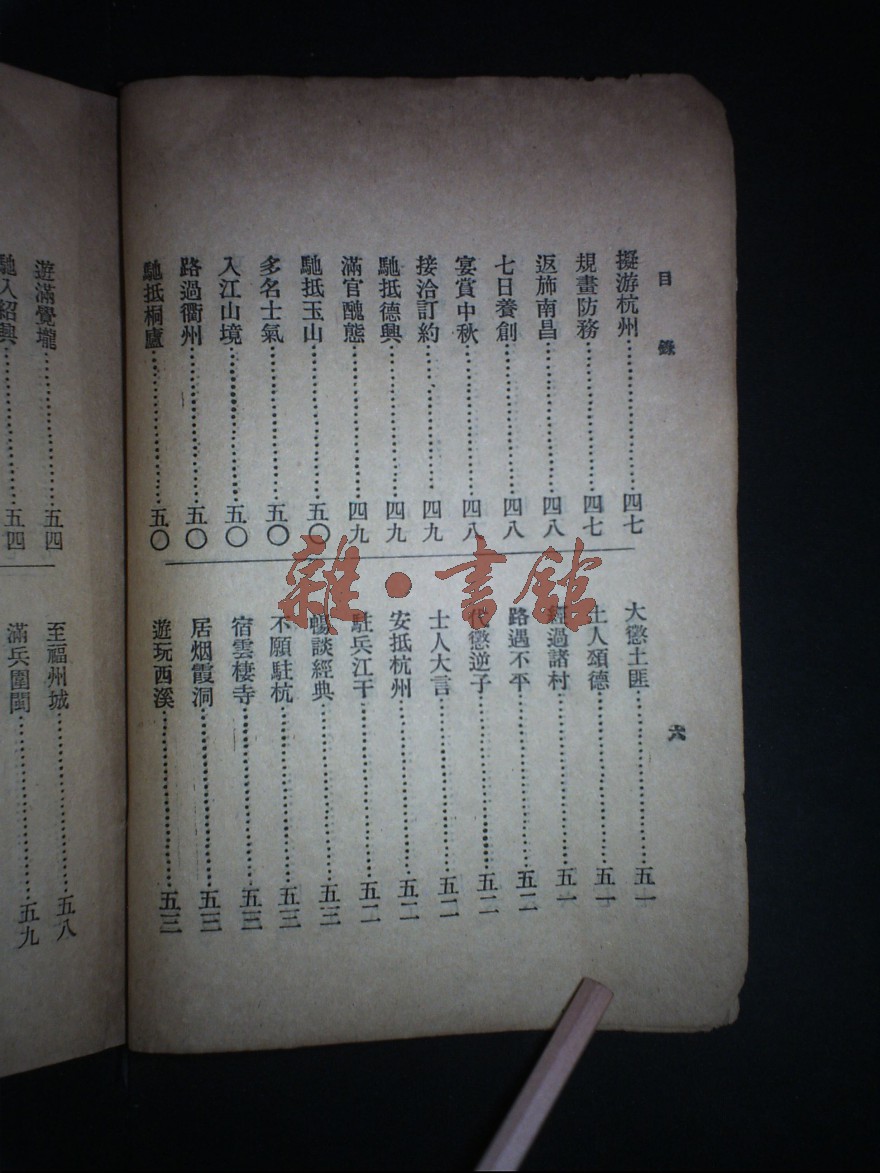 目錄
六
擬游杭州……四七
規畫防務……四七
返斾南昌……四八
七日養創……四八
宴賞中秋……四八
接洽訂約……四九
馳抵德興……四九
滿官醜態……四九
馳抵玉山……五〇
多名士氣……五〇
入江山境……五〇
路過衢州……五〇
馳抵桐廬……五〇
大懲土匪……五一
土人頌德……五一
經過諸村……五一
路遇不平……五二
代懲逆子……五二
士人大言……五二
安抵杭州……五二
駐兵江干……五二
暢談經典……五三
不願駐杭……五三
宿雲棲寺……五三
居烟霞洞……五三
遊玩西溪……五三
遊滿覺壠……五四
馳入紹興……五四
至福州城……五八
滿兵圍閩……五九
雜·書館